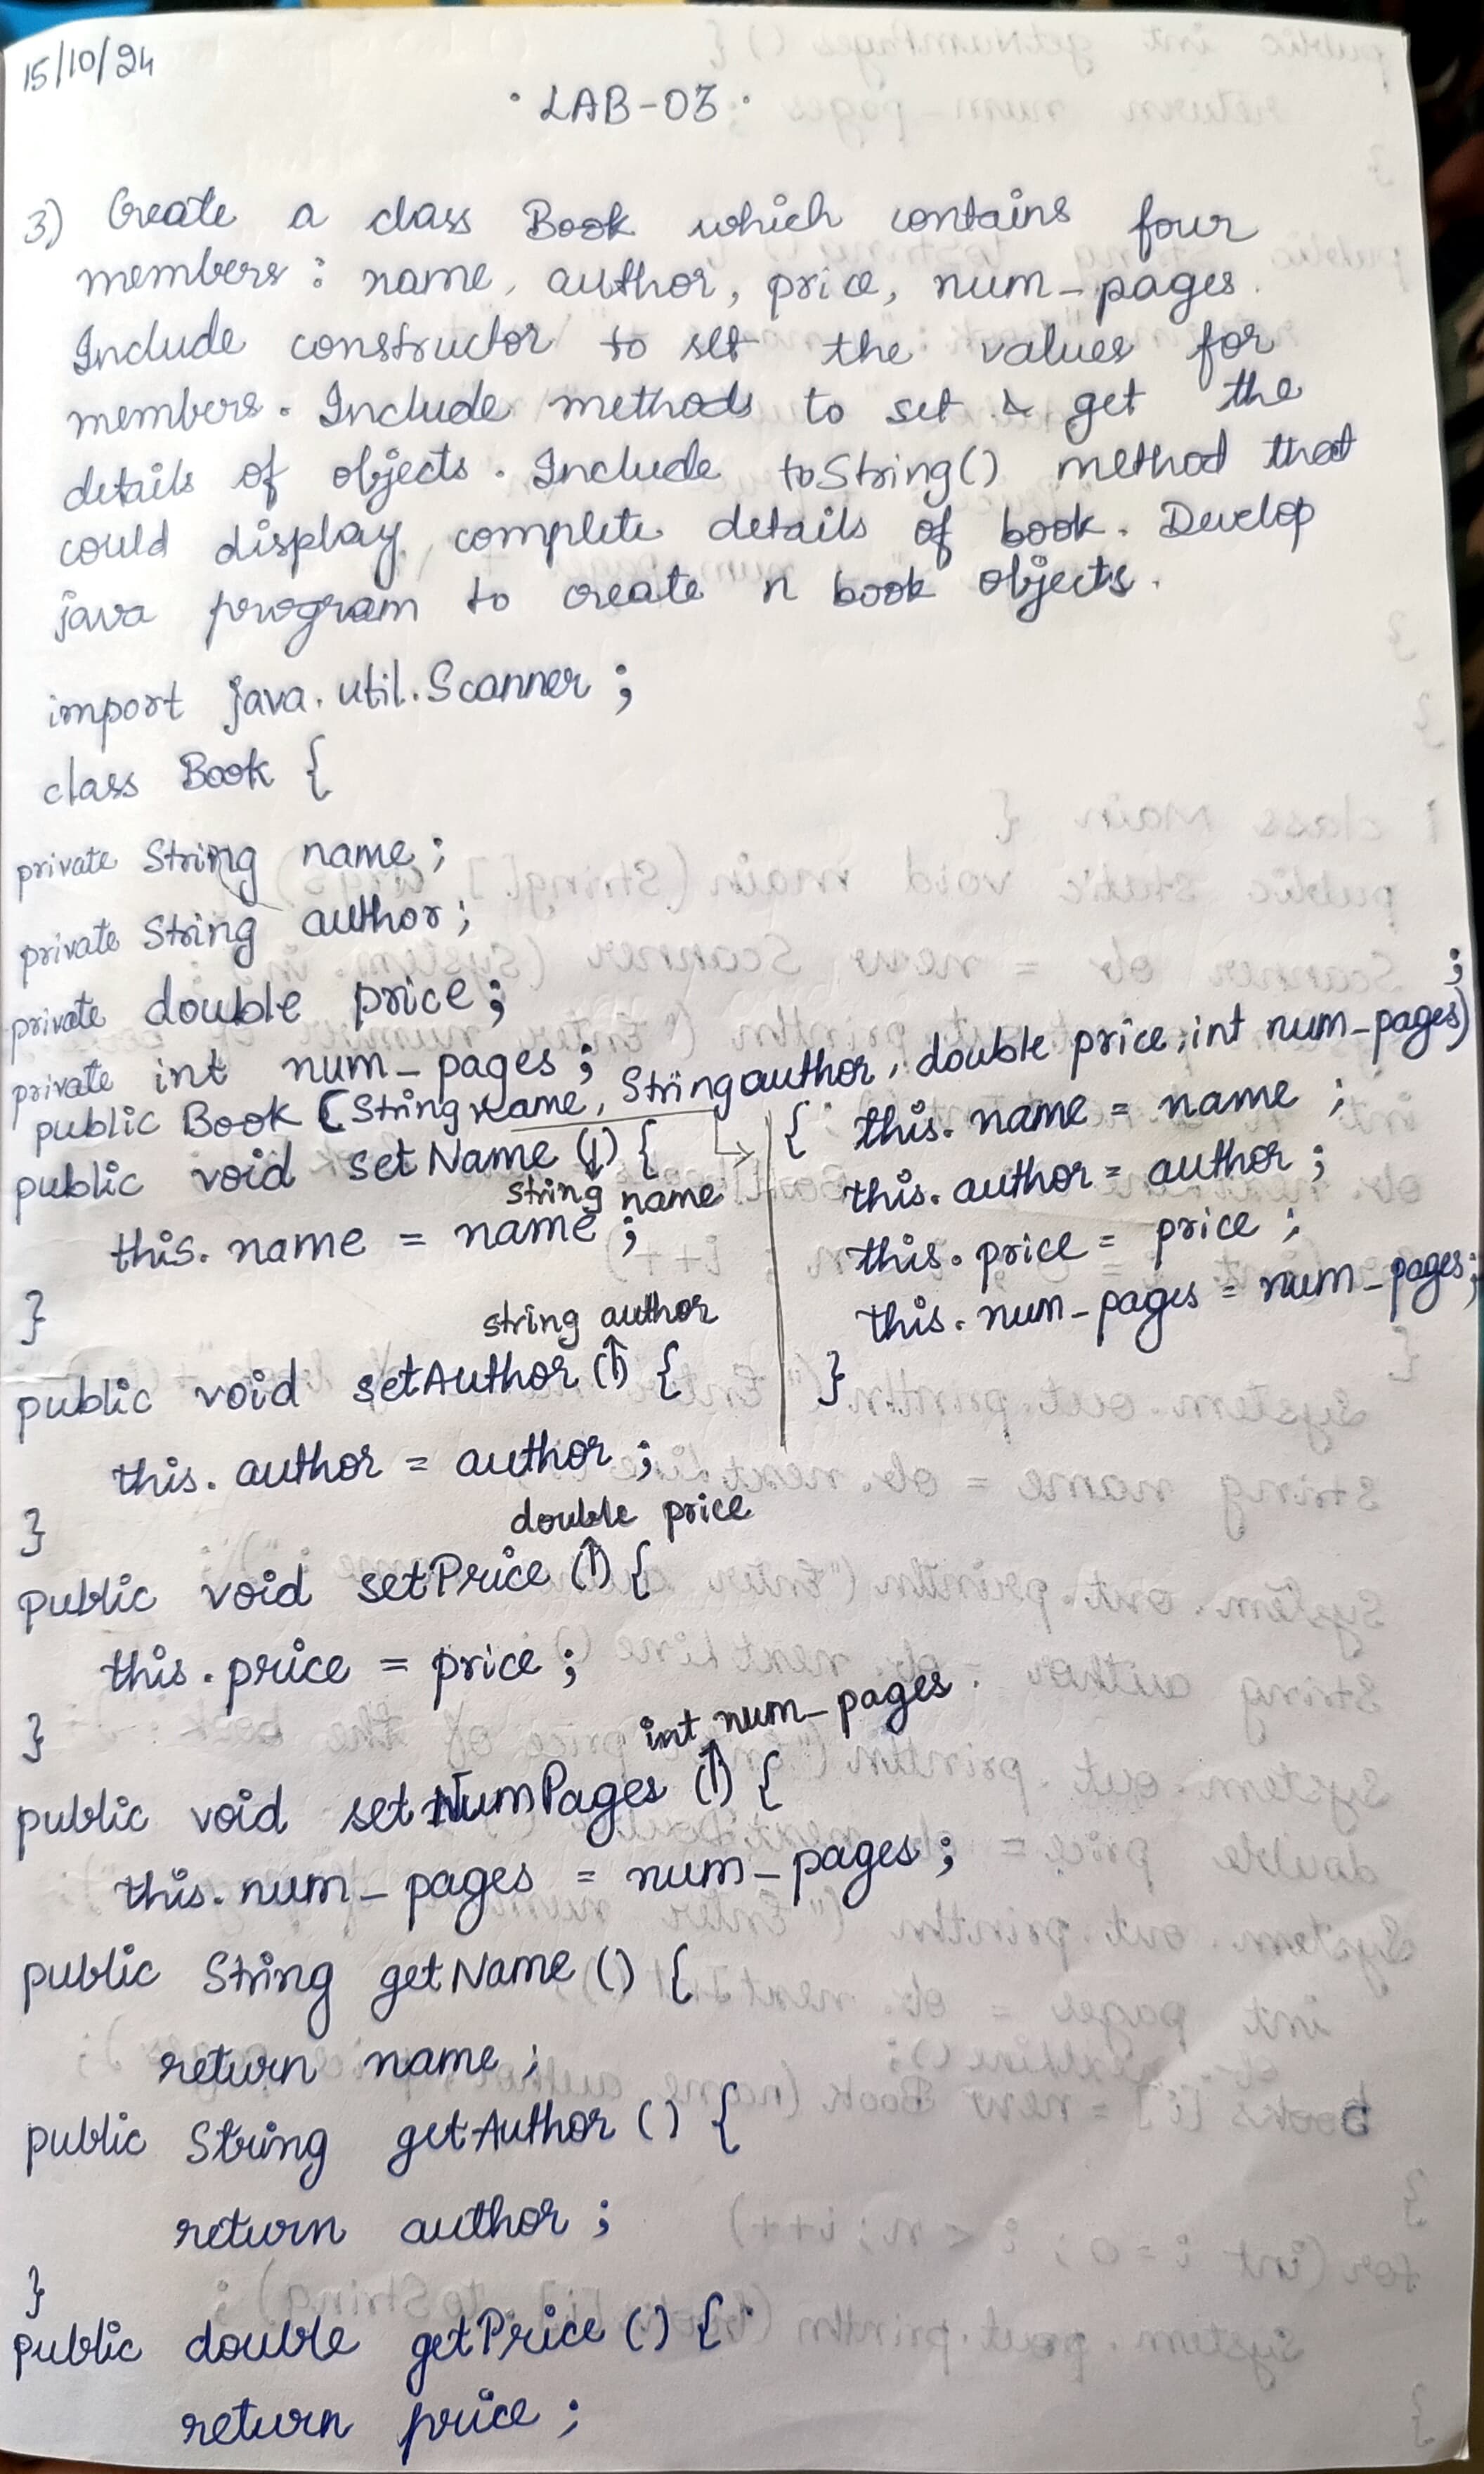 15/10/24
· LAB-03 ·
3) Create a class Book which contains four
members : name, author, price, num_pages.
Include constructor to set the values for
members. Include methods to set & get the
details of objects. Include toString() method that
could display complete details of book. Develop
java program to create n book objects.
import java.util.Scanner ;
class Book {
private String name ;
private String author ;
private double price ;
private int num_pages ;
public Book (String name, String author, double price, int num_pages) ;
{ this.name = name ;
this.author = author ;
this.price = price ;
this.num_pages = num_pages ;
}
public void setName () {
string name
this.name = name ;
}
string author
public void setAuthor () {
this.author = author ;
}
double price
public void setPrice () {
this.price = price ;
}
int num_pages.
public void setNumPages () {
this.num_pages = num_pages ;
public String getName () {
return name ;
public String getAuthor () {
return author ;
}
public double getPrice () {
return price ;